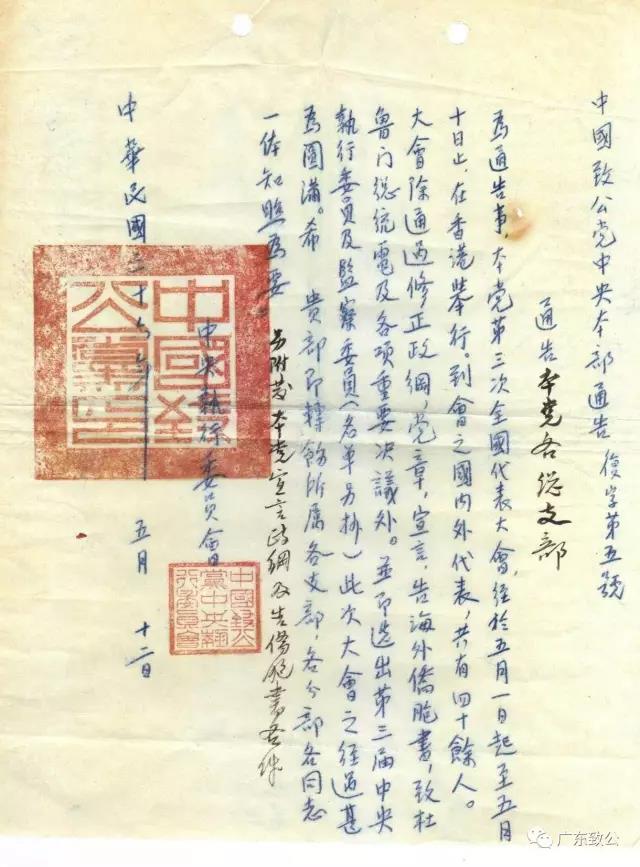 中國致公党中央本部通告 復字第五號
通告本党各总支部
為通告事,本党第三次全國代表大會,経於五月一日起至五月
十日止,在香港舉行。到會之國内外代表,共有四十餘人。
大會除通過修正政綱,党章,宣言,告海外僑胞書,致杜
魯门总統電及各項重要决議外。並即选出第三届中央
執行委員及監察委員(名單另抄)此次大會之経過甚
為圓滿。希 貴部即轉飭所属各支部,各分部各同志
一体知照為要。
另附发本党宣言政綱及告僑胞書各件
中央執行委員會
中華民國三十六年 五月 十二日
中國致公黨印
中國致公黨中央執行委員會
广东致公